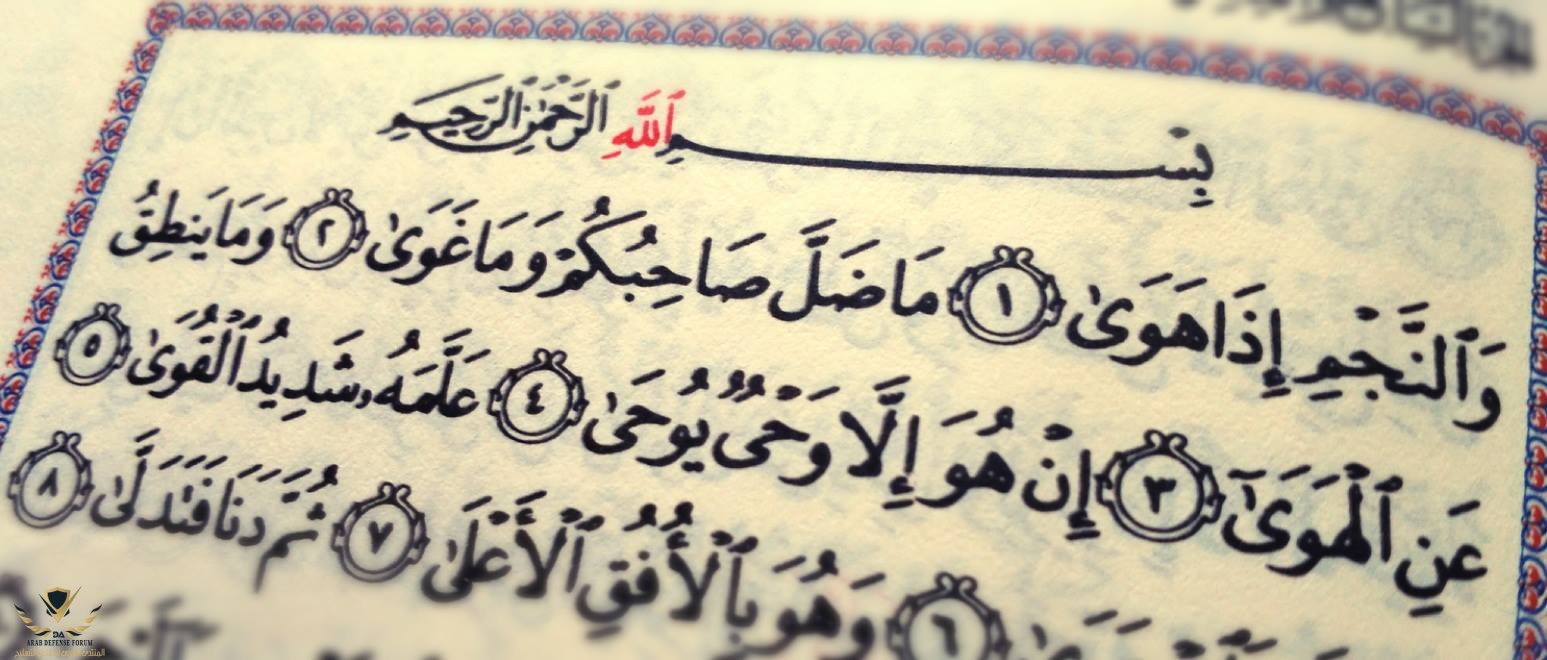 بِسْمِ ٱللَّهِ ٱلرَّحْمَٰنِ ٱلرَّحِيمِ
وَٱلنَّجْمِ إِذَا هَوَىٰ ١ مَا ضَلَّ صَاحِبُكُمْ وَمَا غَوَىٰ ٢ وَمَا يَنطِقُ
عَنِ ٱلْهَوَىٰٓ ٣ إِنْ هُوَ إِلَّا وَحْىٌ يُوحَىٰ ٤ عَلَّمَهُۥ شَدِيدُ ٱلْقُوَىٰ ٥
٦ وَهُوَ بِٱلْأُفُقِ ٱلْأَعْلَىٰ ٧ ثُمَّ دَنَا فَتَدَلَّىٰ ٨
DA
ARAB DEFENSE FORUM